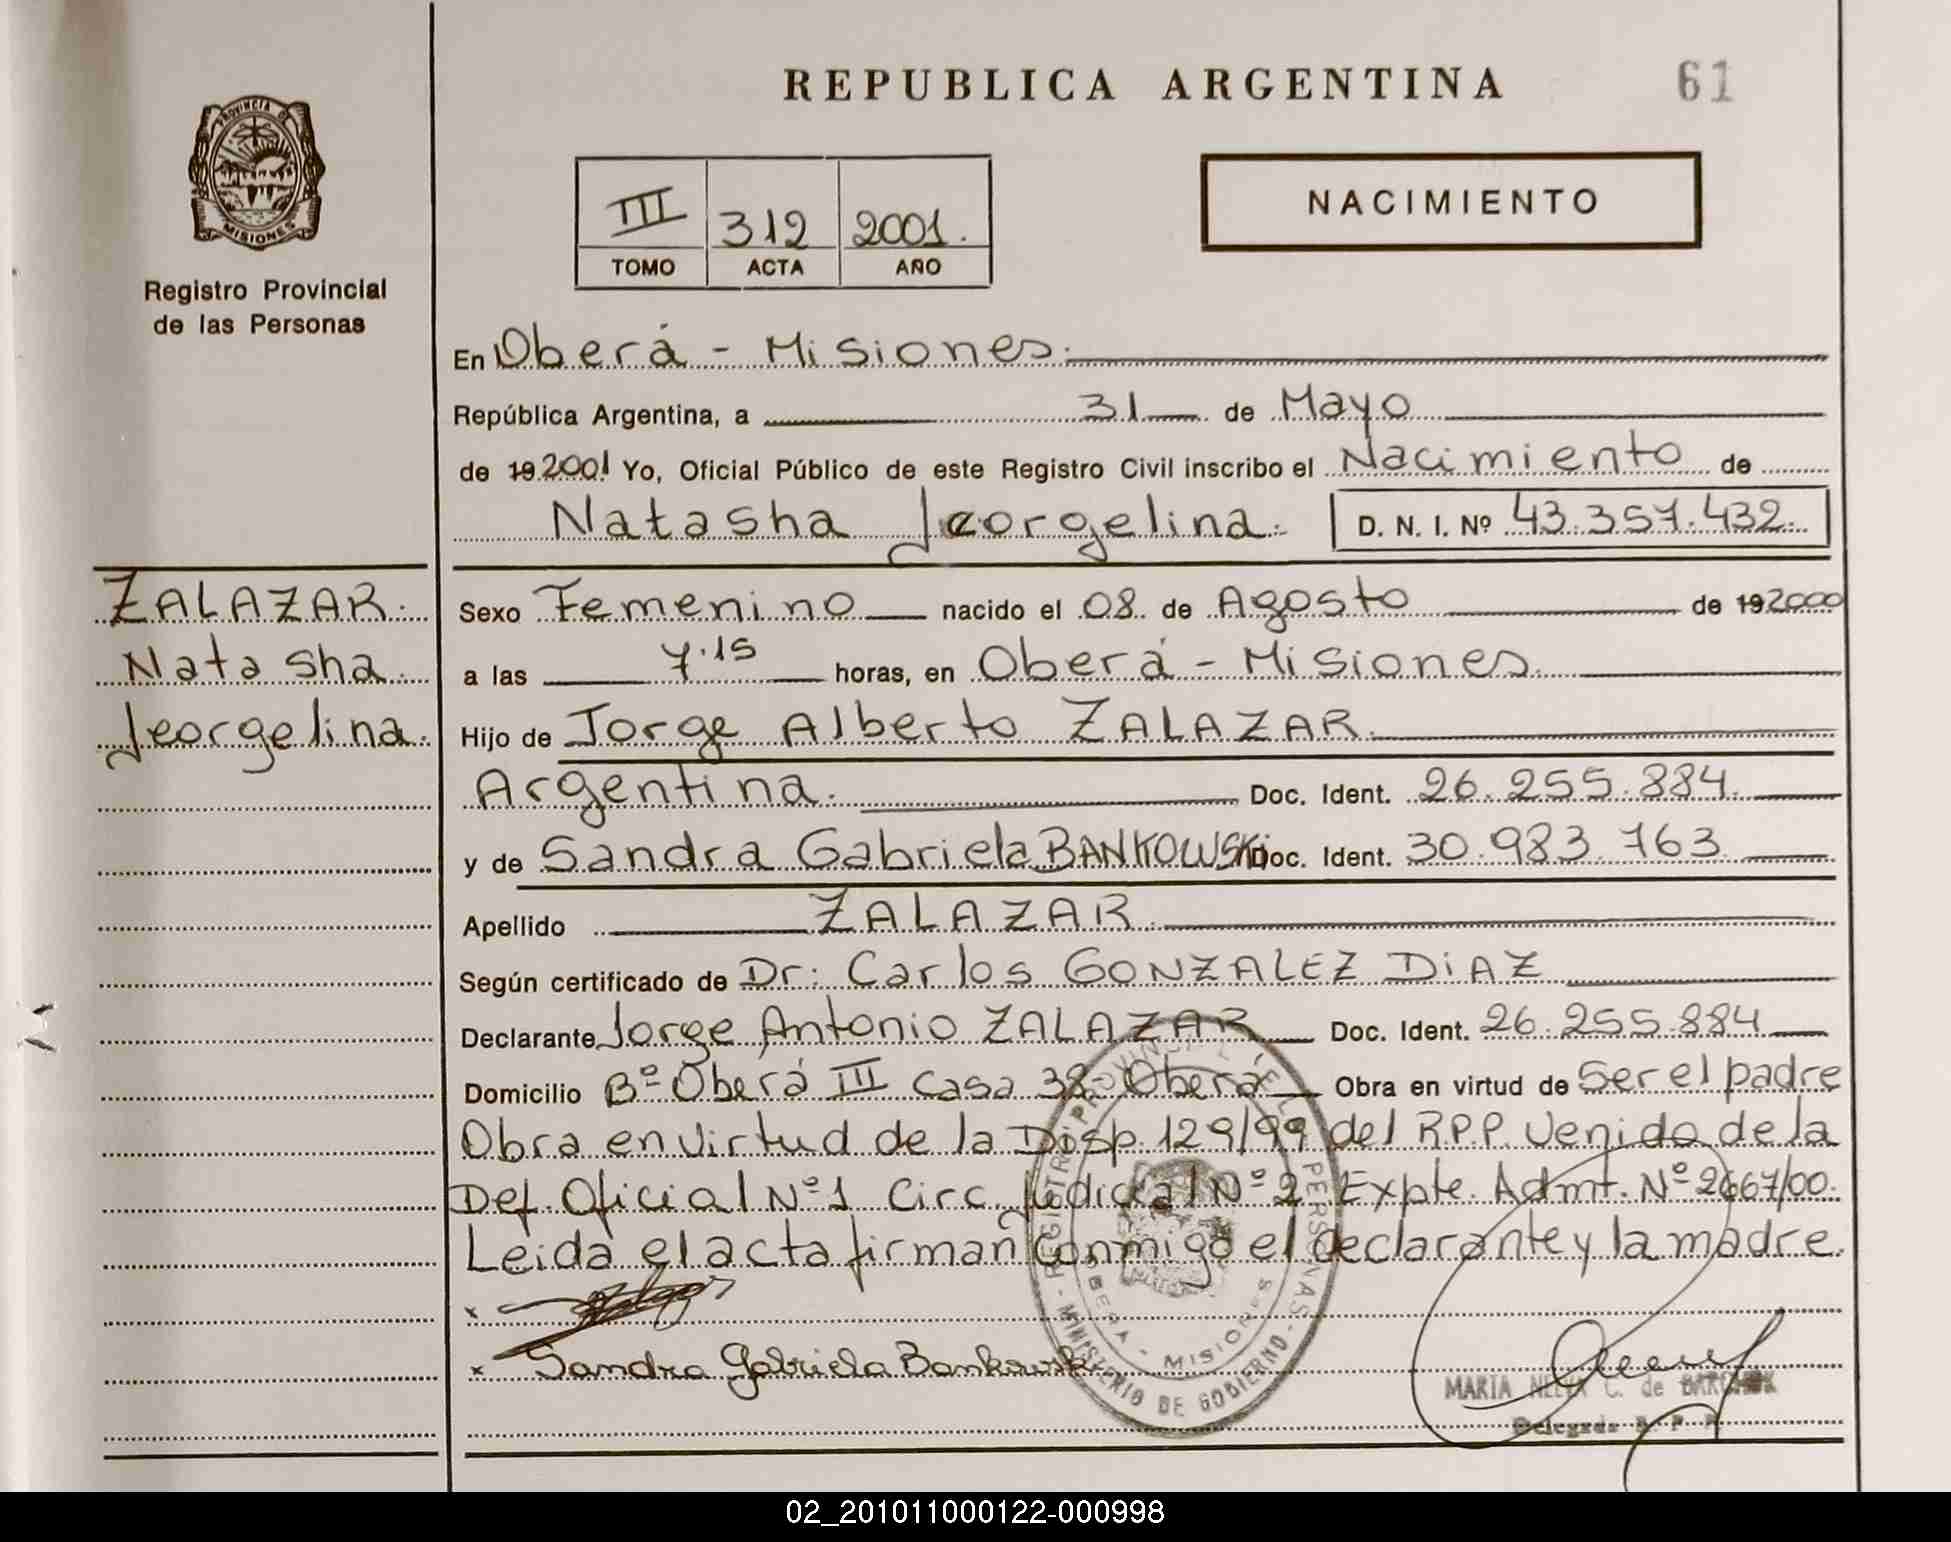 REPUBLICA ARGENTINA
61
PROVINCIA DE
MISIONES
Registro Provincial
de las Personas
III 312 2001.
TOMO ACTA AÑO
NACIMIENTO
En Oberá - Misiones.
República Argentina, a 31 de Mayo
de 19 2001 Yo, Oficial Público de este Registro Civil inscribo el Nacimiento de
Natasha Jeorgelina. D. N. I. Nº 43.357.432.
ZALAZAR.
Natasha
Jeorgelina.
Sexo Femenino nacido el 08 de Agosto de 19 2000
a las 7.15 horas, en Oberá - Misiones.
Hijo de Jorge Alberto ZALAZAR.
Argentina. Doc. Ident. 26.255.884.
y de Sandra Gabriela BANKOWSKi Doc. Ident. 30.983.763
Apellido ZALAZAR.
Según certificado de Dr: Carlos GONZALEZ DiAZ
Declarante Jorge Antonio ZALAZAR Doc. Ident. 26.255.884
Domicilio Bº Oberá III Casa 38 Oberá Obra en virtud de Ser el padre
Obra en virtud de la Disp. 129/99 del R.P.P. Venido de la
Def. Oficial Nº 1 Circ. Judicial Nº 2 Expte. Admt. Nº 2667/00.
Leida el acta firman conmigo el declarante y la madre.
x
x Sandra Gabriela Bankowski
REGISTRO PROVINCIAL DE LAS PERSONAS - MINISTERIO DE GOBIERNO -
OBERA - MISIONES
MARIA NELVA C. de
Delegada R. P. P.
02_201011000122-000998